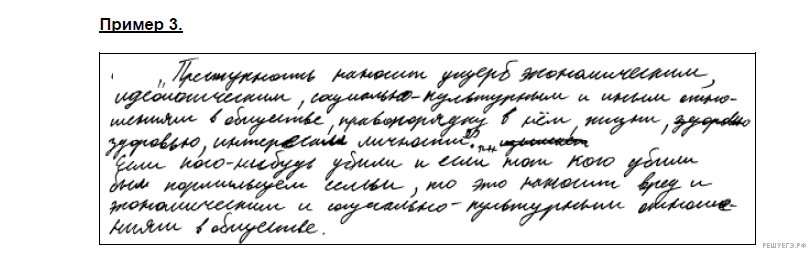 Пример 3.
„Преступность наносит ущерб экономическим,
идеологическим, социально-культурным и иным отно-
шениям в обществе, правопорядку в нём, жизни, здоровью
здоровью, интересам личности."
Если кого-нибудь убили и если тот кого убили
был кормильцем семьи, то это наносит вред и
экономическим и социально-культурным отноше-
ниям в обществе.
РЕШУЕГЭ.РФ